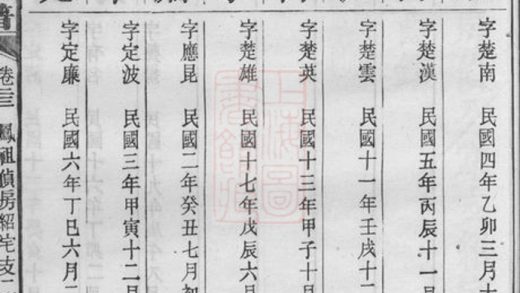 字楚南 民國四年乙卯三月十
字楚漢 民國五年丙辰十一月
字楚雲 民國十一年壬戌十二
字楚英 民國十三年甲子十
字楚雄 民國十七年戊辰六月
字應昆 民國二年癸丑七月初
字定波 民國三年甲寅十二月
字定廉 民國六年丁巳六月二
卷三 鳳祖偵房紹宅支二
上海圖書館藏